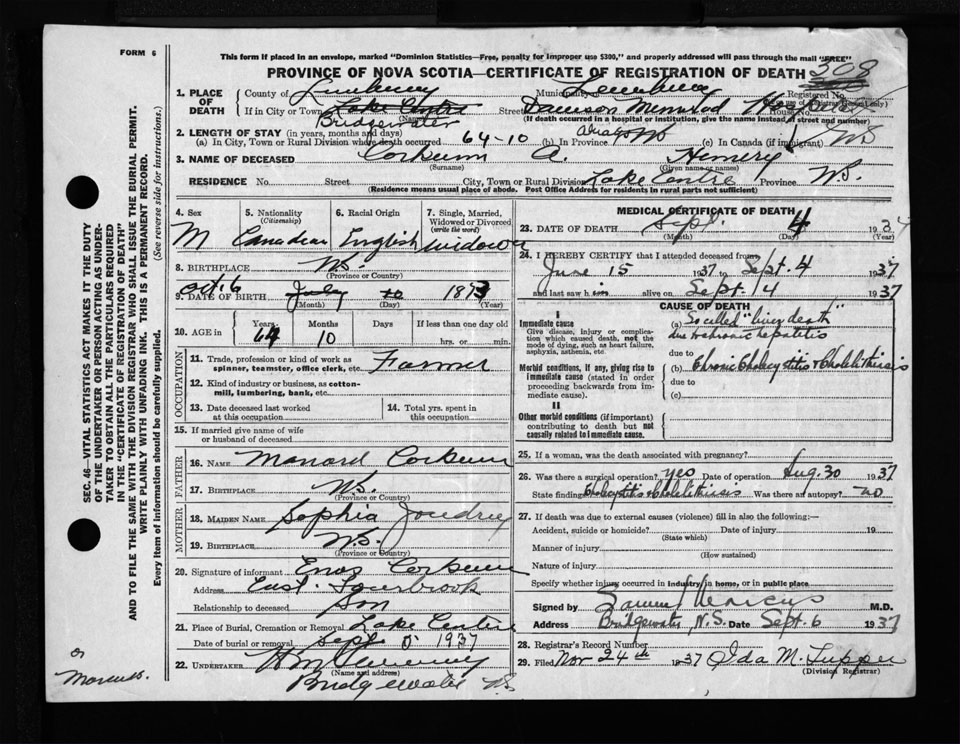 FORM 6
This form if placed in an envelope, marked "Dominion Statistics—Free, penalty for improper use $300," and properly addressed will pass through the mail "FREE"
PROVINCE OF NOVA SCOTIA—CERTIFICATE OF REGISTRATION OF DEATH 308
1. PLACE OF DEATH
County of Lunenburg Municipality Lunenburg Registered No.
If in City or Town Lake Centre Street Dawson Memorial Hospital House No.
(Name)
Bridgewater (If death occurred in a hospital or institution, give the name instead of street and number)
2. LENGTH OF STAY (in years, months and days)
(a) In City, Town or Rural Division where death occurred 64-10 (b) In Province always NS (c) In Canada (if immigrant) NS
3. NAME OF DECEASED Corkum A. Hennery
(Surname) (Given name or names)
RESIDENCE No. Street City, Town or Rural Division Lake Centre Province N.S.
(Residence means usual place of abode. Post Office Address for residents in rural parts not sufficient)
SEC. 46—VITAL STATISTICS ACT MAKES IT THE DUTY
OF THE UNDERTAKER OR PERSON ACTING AS UNDER-
TAKER TO OBTAIN ALL THE PARTICULARS REQUIRED
IN THE "CERTIFICATE OF REGISTRATION OF DEATH"
AND TO FILE THE SAME WITH THE DIVISION REGISTRAR WHO SHALL ISSUE THE BURIAL PERMIT.
WRITE PLAINLY WITH UNFADING INK. THIS IS A PERMANENT RECORD.
Every item of information should be carefully supplied. (See reverse side for instructions.)
4. Sex
M
5. Nationality
(Citizenship)
Canadian
6. Racial Origin
English
7. Single, Married, Widowed or Divorced
(write the word)
Widower
8. BIRTHPLACE N.S.
(Province or Country)
Oct. 6
9. DATE OF BIRTH July 10 1873
(Month) (Day) (Year)
10. AGE in
Years Months Days If less than one day old
64 10 hrs. or min.
OCCUPATION
11. Trade, profession or kind of work as spinner, teamster, office clerk, etc. Farmer
12. Kind of industry or business, as cotton-mill, lumbering, bank, etc.
13. Date deceased last worked at this occupation
14. Total yrs. spent in this occupation
15. If married give name of wife or husband of deceased
FATHER
16. NAME Manard Corkum
17. BIRTHPLACE N.S.
(Province or Country)
MOTHER
18. MAIDEN NAME Sophia Joudrey
19. BIRTHPLACE N.S.
(Province or Country)
20. Signature of informant Enos Corkum
Address East
Relationship to deceased Son
21. Place of Burial, Cremation or Removal Lake Centre
Date of burial or removal Sept 5 1937
22. UNDERTAKER
(Name and address)
Bridgewater N.S.
or
Marcus.
MEDICAL CERTIFICATE OF DEATH
23. DATE OF DEATH Sept. 4 193
(Month) (Day) (Year)
24. I HEREBY CERTIFY that I attended deceased from
June 15 1937 to Sept. 4 1937
and last saw h is alive on Sept. 14 1937
CAUSE OF DEATH
I
Immediate cause
Give disease, injury or complica-
tion which caused death, not the
mode of dying, such as heart failure,
asphyxia, asthenia, etc.
Morbid conditions, if any, giving rise to
immediate cause (stated in order
proceeding backwards from im-
mediate cause).
II
Other morbid conditions (if important)
contributing to death but not
causally related to immediate cause.
(a) So called "liver death"
due to chronic hepatitis
due to
(b) Chronic Cholecystitis & Cholelithiasis
due to
(c)
25. If a woman, was the death associated with pregnancy?
26. Was there a surgical operation? yes Date of operation Aug. 30 1937
State findings Cholecystitis & Cholelithiasis Was there an autopsy? no
27. If death was due to external causes (violence) fill in also the following:—
Accident, suicide or homicide? Date of injury 19
(State which)
Manner of injury
(How sustained)
Nature of injury
Specify whether injury occurred in industry, in home, or in public place
Signed by Samuel Marcus M.D.
Address Bridgewater, N.S. Date Sept. 6 1937
28. Registrar's Record Number
29. Filed Nov 24th 1937 Ida M. Tupper
(Division Registrar)